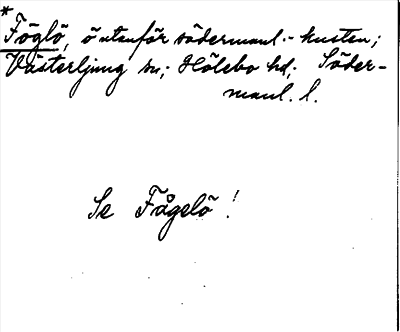 *
Föglö, ö utanför södermanl.-kusten;
Västerljung sn; Hölebo hd; Söder-
manl. l.
Se Fågelö!